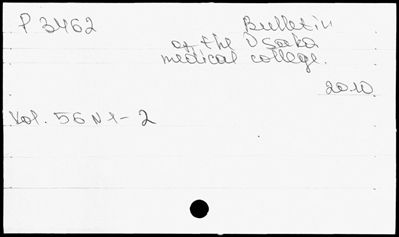 P 3462 Bulletin
of the Osaka
medical college.
2010.
Vol. 56 N 1-2